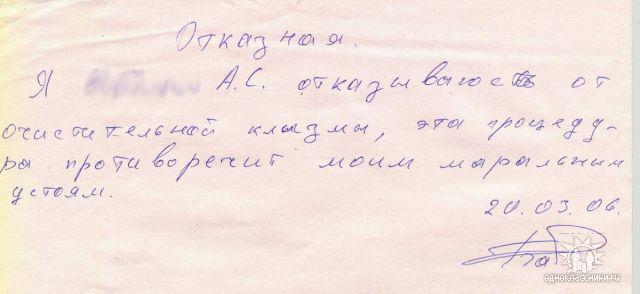 Отказная.
Я А.С. отказываюсь от
очистительной клызмы, эта процеду-
ра противоречит моим маральним
устоям.
20.03.06.
одноклассники.ru